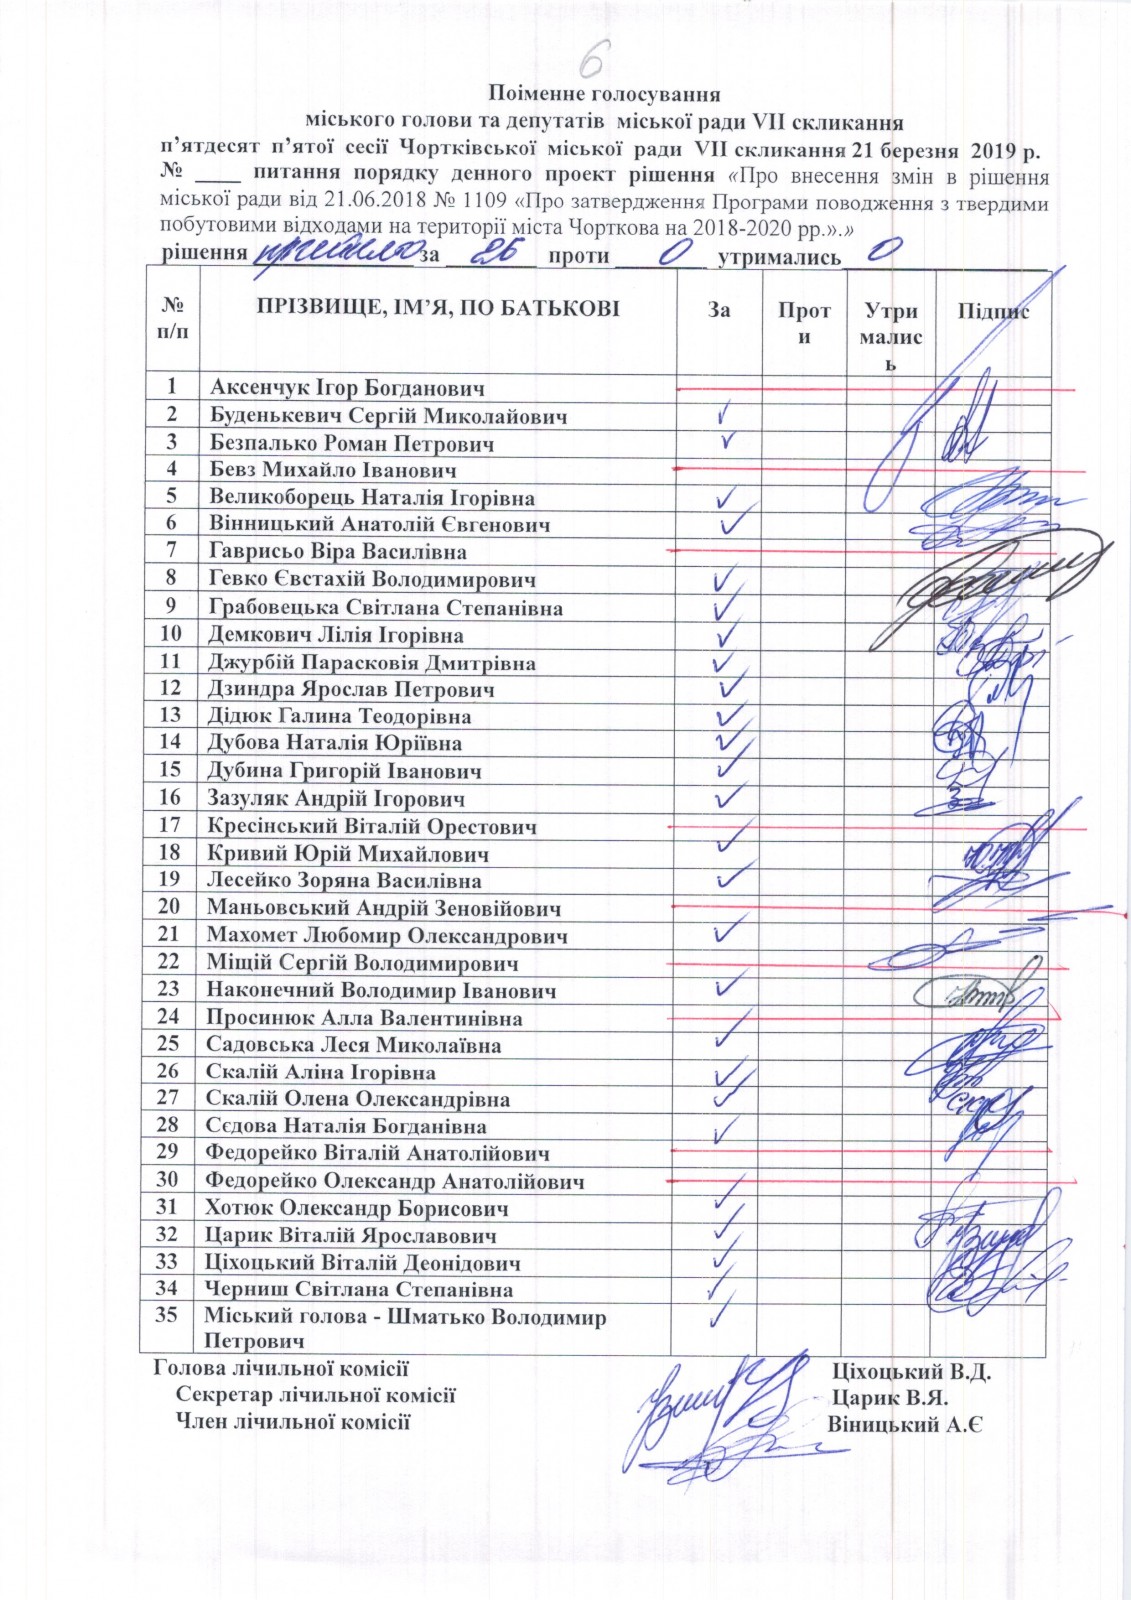 6
Поіменне голосування
міського голови та депутатів міської ради VII скликання
п’ятдесят п’ятої сесії Чортківської міської ради VII скликання 21 березня 2019 р.
№ ____ питання порядку денного проект рішення «Про внесення змін в рішення
міської ради від 21.06.2018 № 1109 «Про затвердження Програми поводження з твердими
побутовими відходами на території міста Чорткова на 2018-2020 рр.».»
рішення прийнято за 26 проти 0 утримались 0
№ п/п ПРІЗВИЩЕ, ІМ’Я, ПО БАТЬКОВІ За Проти Утримались Підпис
1 Аксенчук Ігор Богданович
2 Буденькевич Сергій Миколайович ✓
3 Безпалько Роман Петрович ✓
4 Бевз Михайло Іванович
5 Великоборець Наталія Ігорівна ✓
6 Вінницький Анатолій Євгенович ✓
7 Гаврисьо Віра Василівна
8 Гевко Євстахій Володимирович ✓
9 Грабовецька Світлана Степанівна ✓
10 Демкович Лілія Ігорівна ✓
11 Джурбій Парасковія Дмитрівна ✓
12 Дзиндра Ярослав Петрович ✓
13 Дідюк Галина Теодорівна ✓
14 Дубова Наталія Юріївна ✓
15 Дубина Григорій Іванович ✓
16 Зазуляк Андрій Ігорович ✓
17 Кресінський Віталій Орестович
18 Кривий Юрій Михайлович ✓
19 Лесейко Зоряна Василівна ✓
20 Маньовський Андрій Зеновійович
21 Махомет Любомир Олександрович ✓
22 Міщій Сергій Володимирович
23 Наконечний Володимир Іванович ✓
24 Просинюк Алла Валентинівна
25 Садовська Леся Миколаївна ✓
26 Скалій Аліна Ігорівна ✓
27 Скалій Олена Олександрівна ✓
28 Сєдова Наталія Богданівна ✓
29 Федорейко Віталій Анатолійович
30 Федорейко Олександр Анатолійович
31 Хотюк Олександр Борисович ✓
32 Царик Віталій Ярославович ✓
33 Ціхоцький Віталій Деонідович ✓
34 Черниш Світлана Степанівна ✓
35 Міський голова - Шматько Володимир ✓
Петрович
Голова лічильної комісії Ціхоцький В.Д.
Секретар лічильної комісії Царик В.Я.
Член лічильної комісії Віницький А.Є